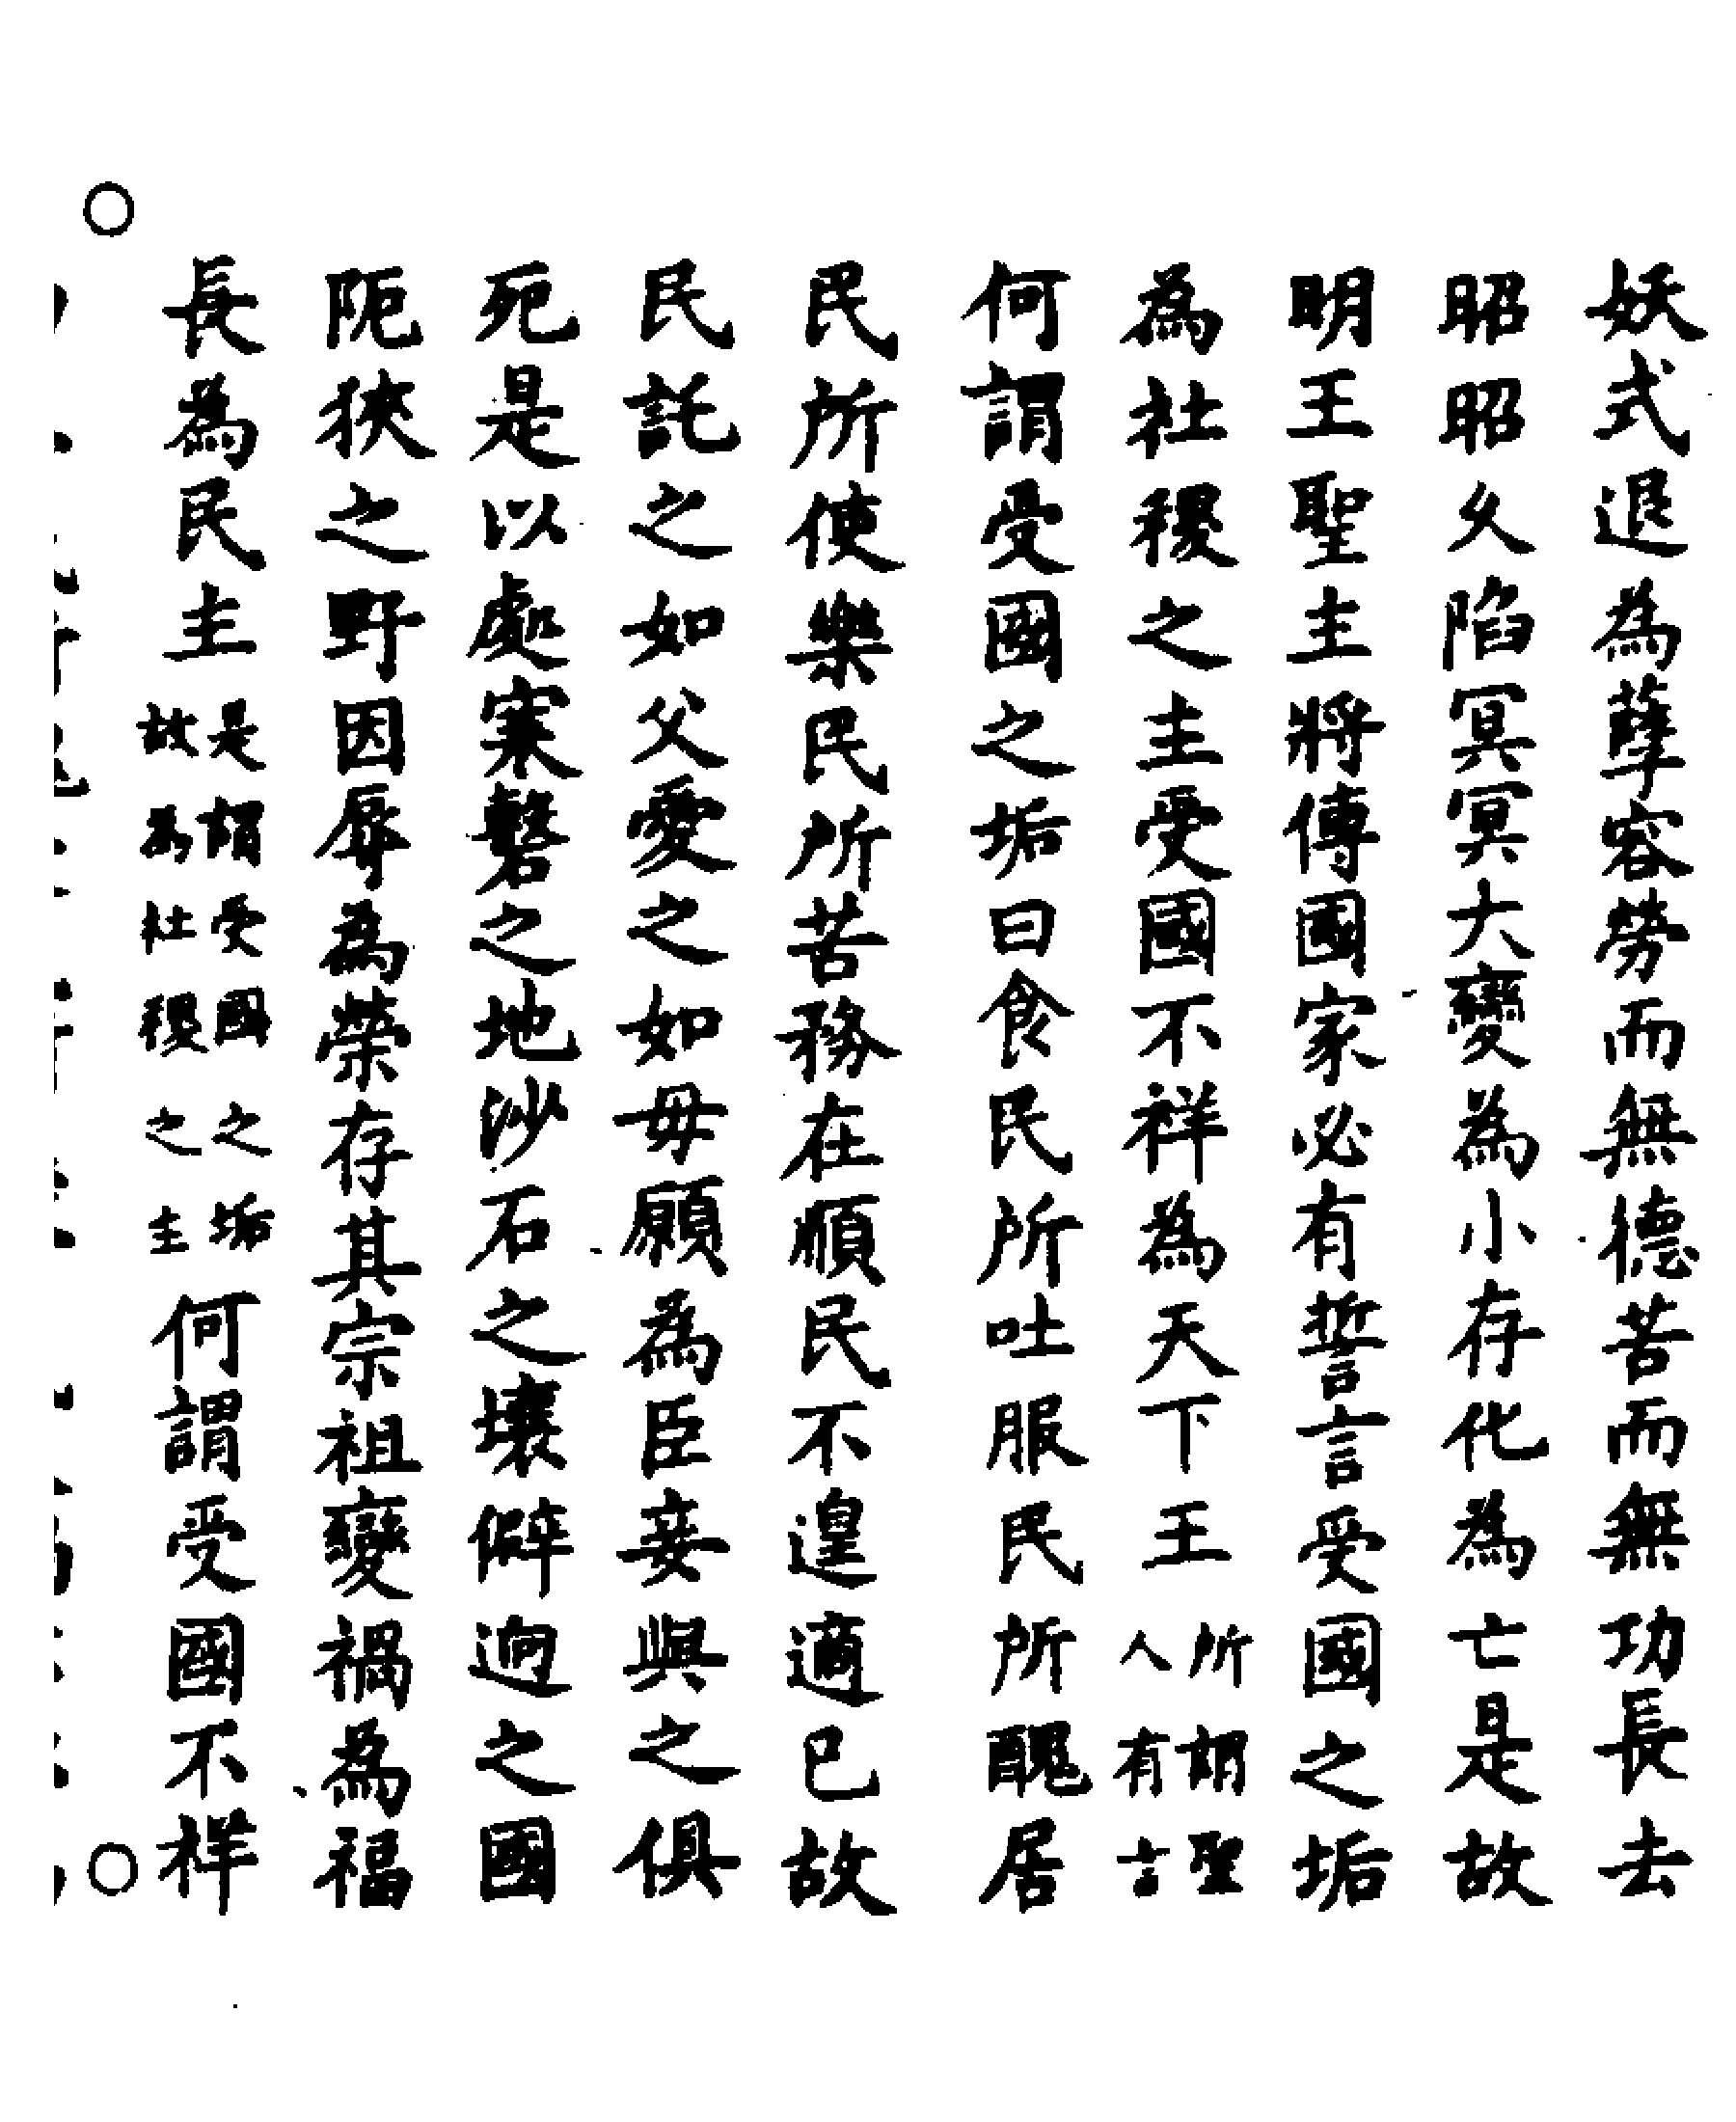 妖式退為孽容勞而無德苦而無功長去
昭昭久陷冥冥大變為小存化為亡是故
明王聖主將傳國家必有誓言受國之垢
為社稷之主受國不祥為天下王所謂聖人有言
何謂受國之垢曰食民所吐服民所醜居
民所使樂民所苦務在順民不遑適已故
民託之如父愛之如母願為臣妾與之俱
死是以處寒磬之地沙石之壤僻迥之國
阨狹之野因辱為榮存其宗祖變禍為福
長為民主是謂受國之垢故為社稷之主何謂受國不祥